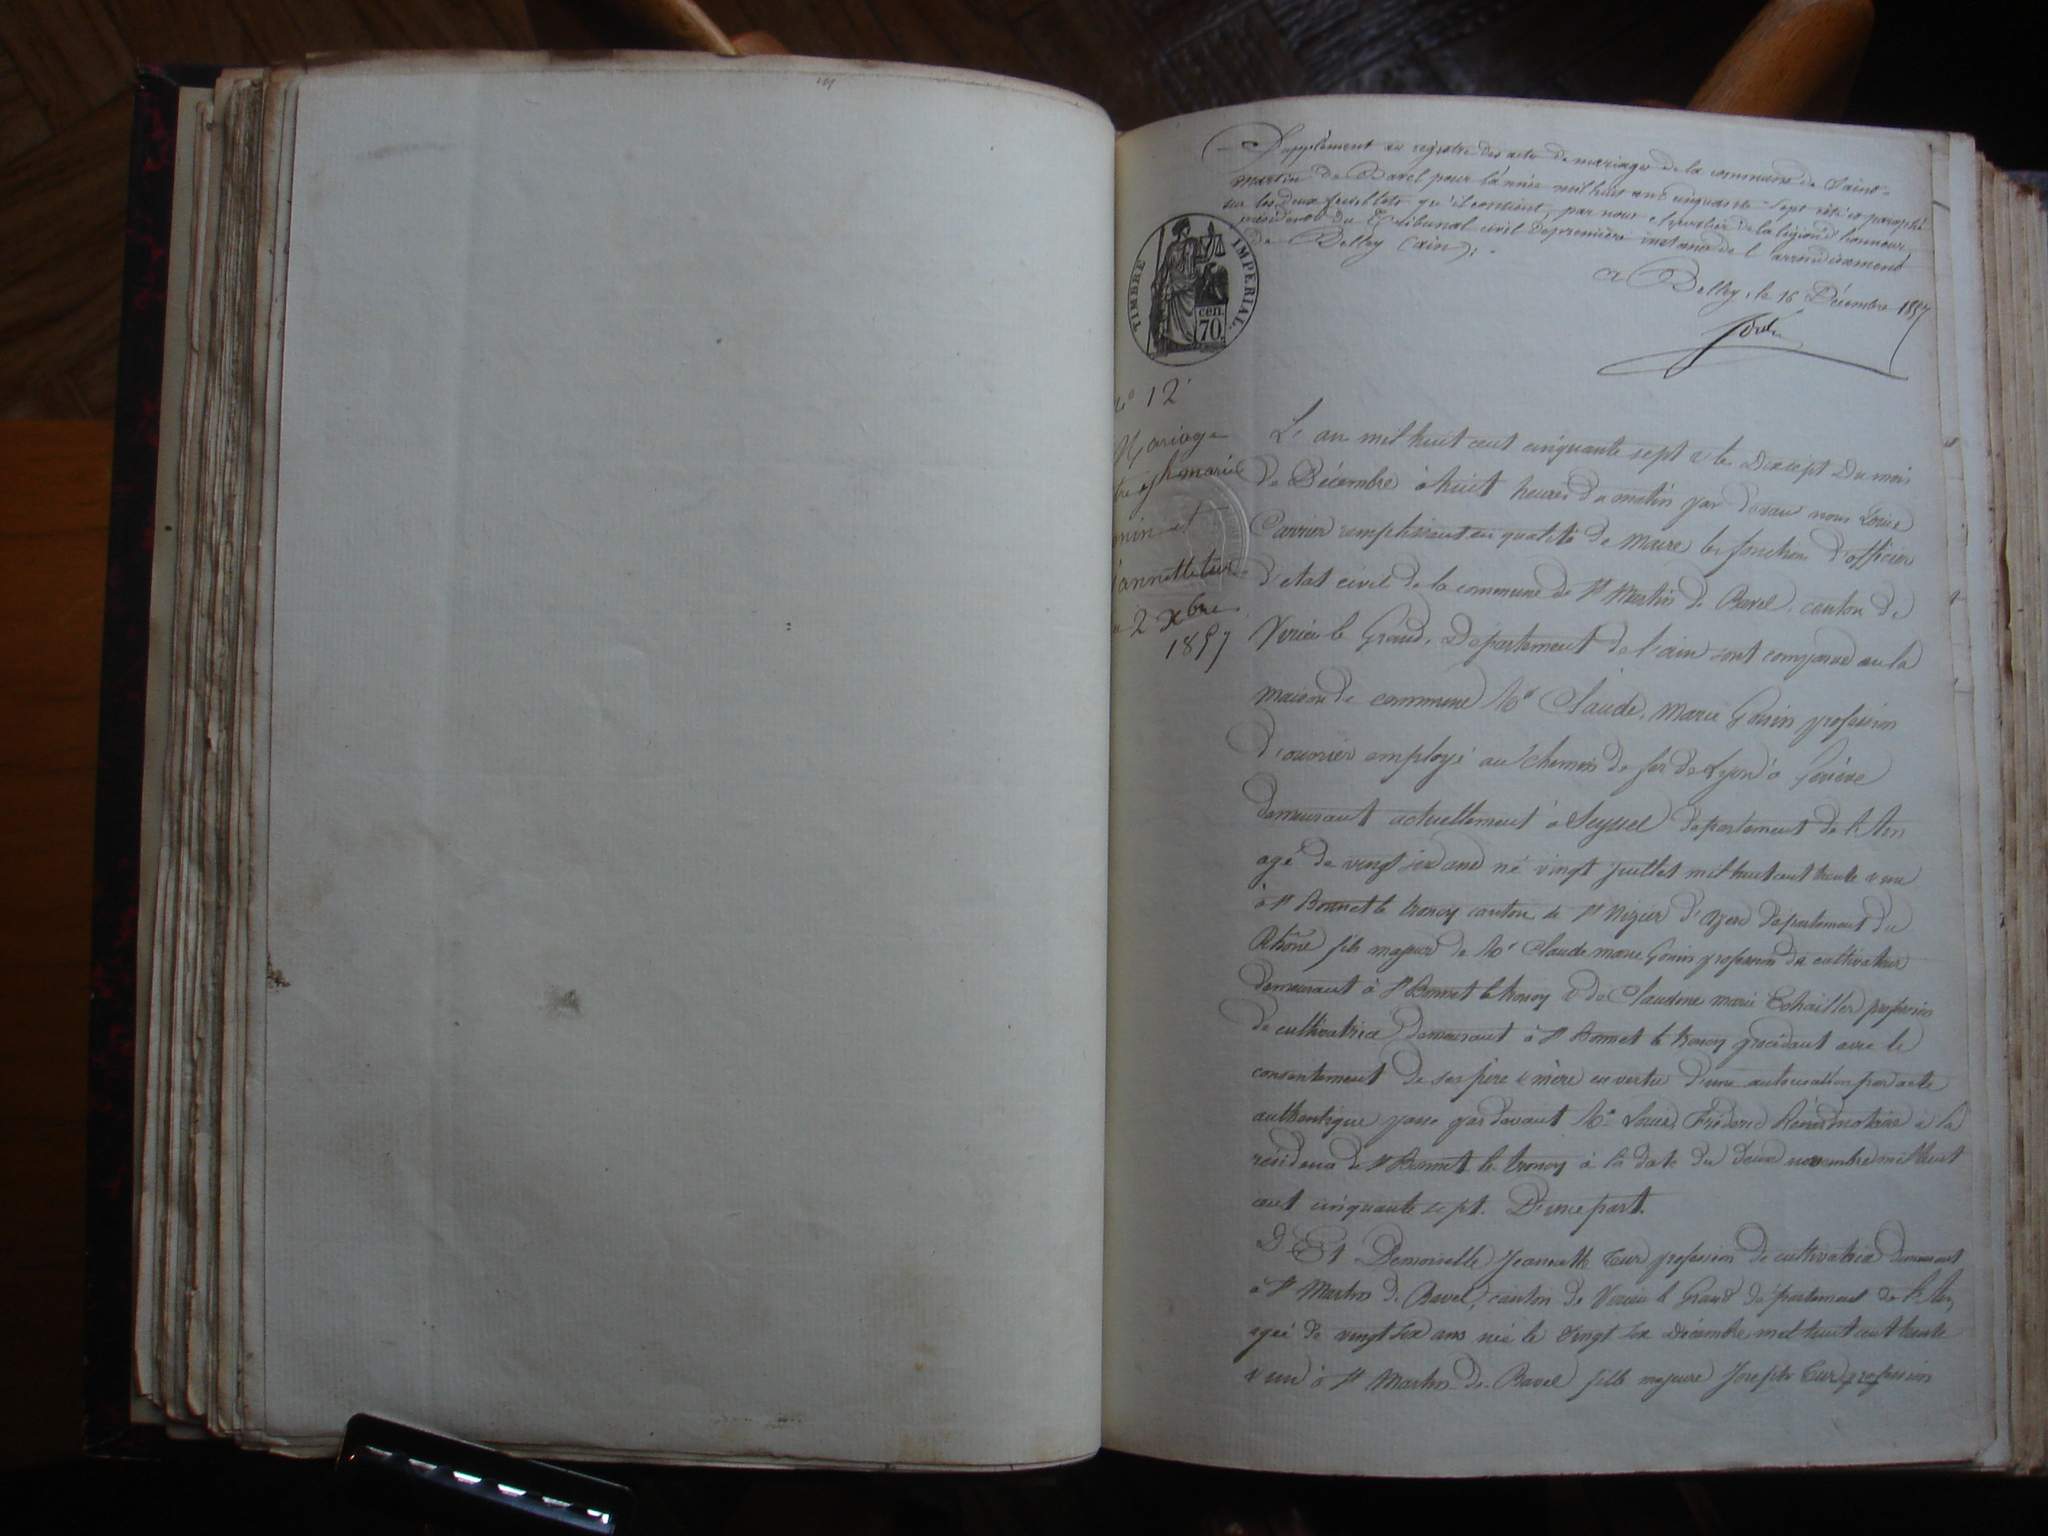 Supplément au registre des actes de mariages de la commune de Saint-
Martin de Bavel pour l'année mil huit cent cinquante-sept côté et paraphé
sur les deux feuillets qu'il contient, par nous chevalier de la légion d'honneur,
président du Tribunal civil de première instance de l'arrondissement
de Belley (ain);
a Belley, le 16 Décembre 1857
TIMBRE IMPERIAL
cen.
70.
No 12
Mariage
marie
et
annette tur
2 xbre
1857
L'an mil huit cent cinquante sept & le Dixsept Du mois
de Décembre à huit heures du matin par devant nous Louis
Carrier remplissant en qualité de maire les fonctions d'officier
d'etat civil de la commune de St Martin de Bavel, canton de
Virieu le Grand, Département de l'ain sont comparu en la
maison de commune Mr Claude, Marie Gonin profession
d'ouvrier employé au chemin de fer de Lyon à Genève
demeurant actuellement à Seyssel département de l'Ain
agé de vingt six ans né vingt juillet mil huit cent trente & un
à St Bonnet le troncy canton de St Nizier d'azer département du
Rhône fils majeur de Mr Claude marie Gonin profession de cultivateur
demeurant à St Bonnet le troncy & de Claudine marie Echallier profession
de cultivatrice demeurant à St Bonnet le troncy procédant avec le
consentement de ses père & mère en vertu d'une autorisation par acte
authentique passé par devant Me Louis Frédéric notaire à la
residence de St Bonnet le troncy à la date du deux novembre mil huit
cent cinquante sept. D'une part.
Et Demoiselle Jeannette Tur profession de cultivatrice demeurant
à St Martin de Bavel, canton de Virieu le Grand département de l'Ain,
agée de vingt six ans née le vingt six décembre mil huit cent trente
& un à St Martin de Bavel fille majeure Joseph Tur profession